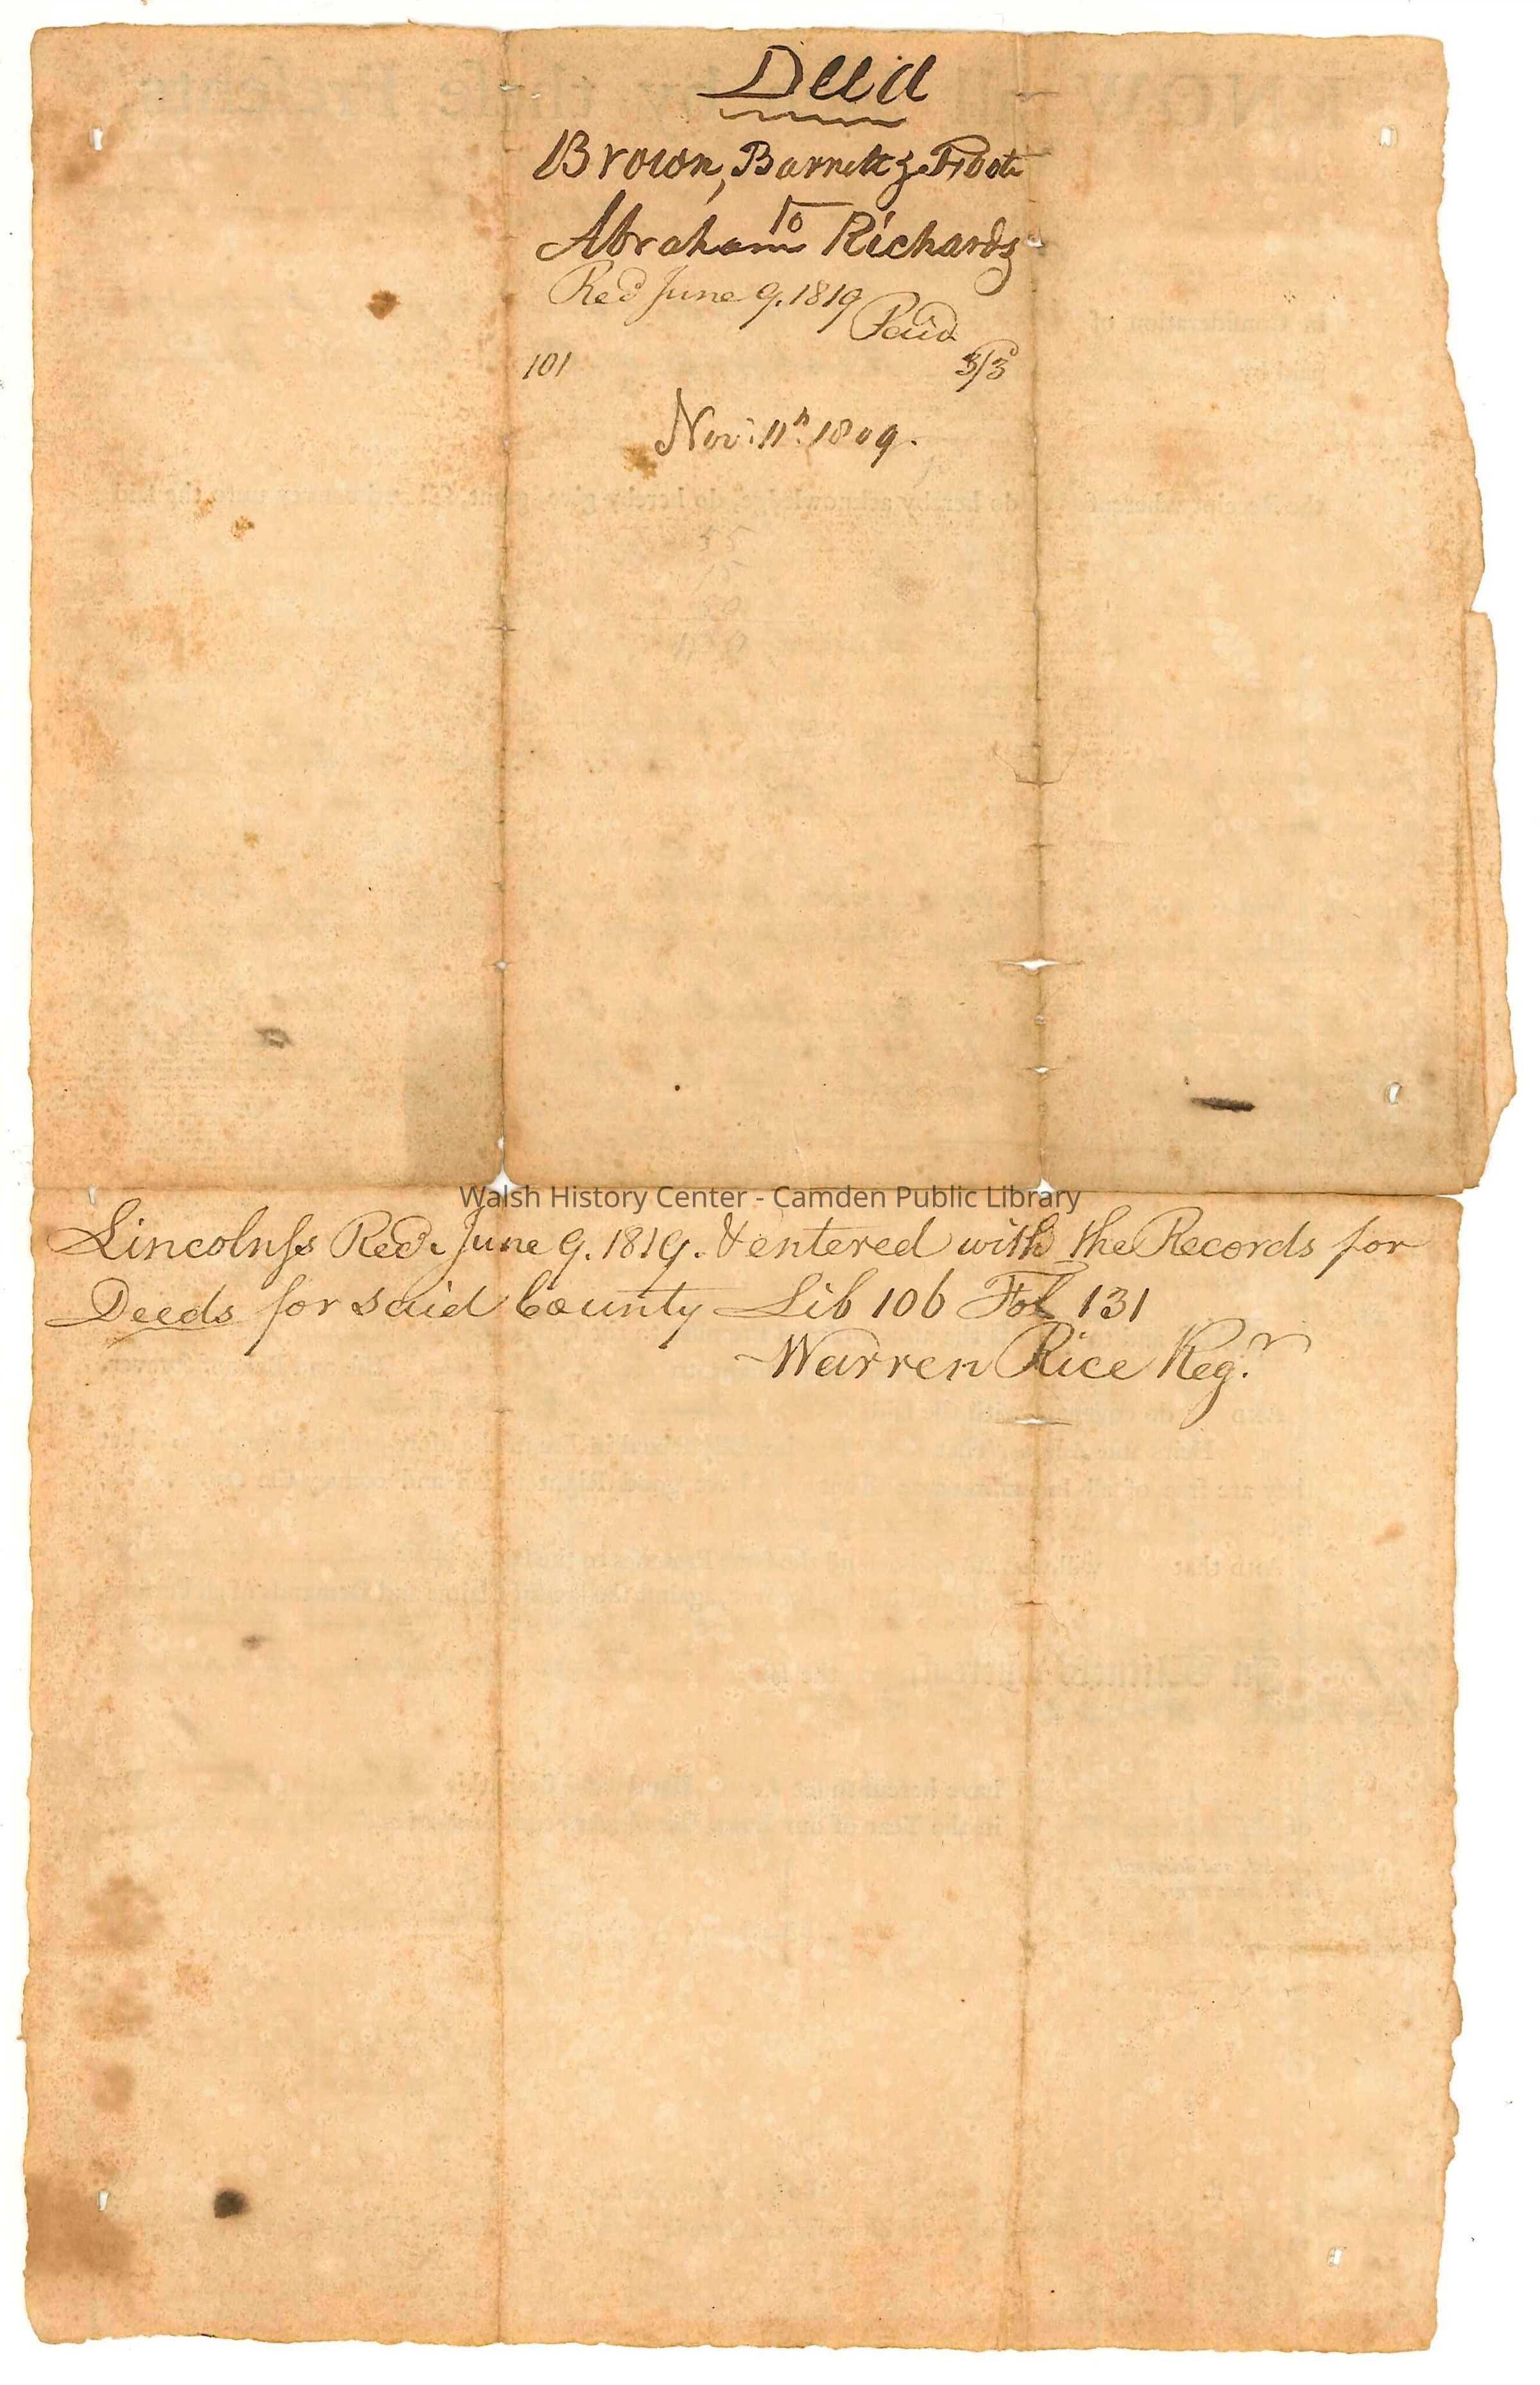 Deed
Brown, Barnett & Foote
to
Abraham Richards
Recd June 9. 1819
Paid
101 3/3
Nov: 11th 1809.
55
Walsh History Center - Camden Public Library
Lincoln ss Recd. June 9. 1819. & entered with the Records for
Deeds for said County Lib 106 Fol 131
Warren Rice Regr.